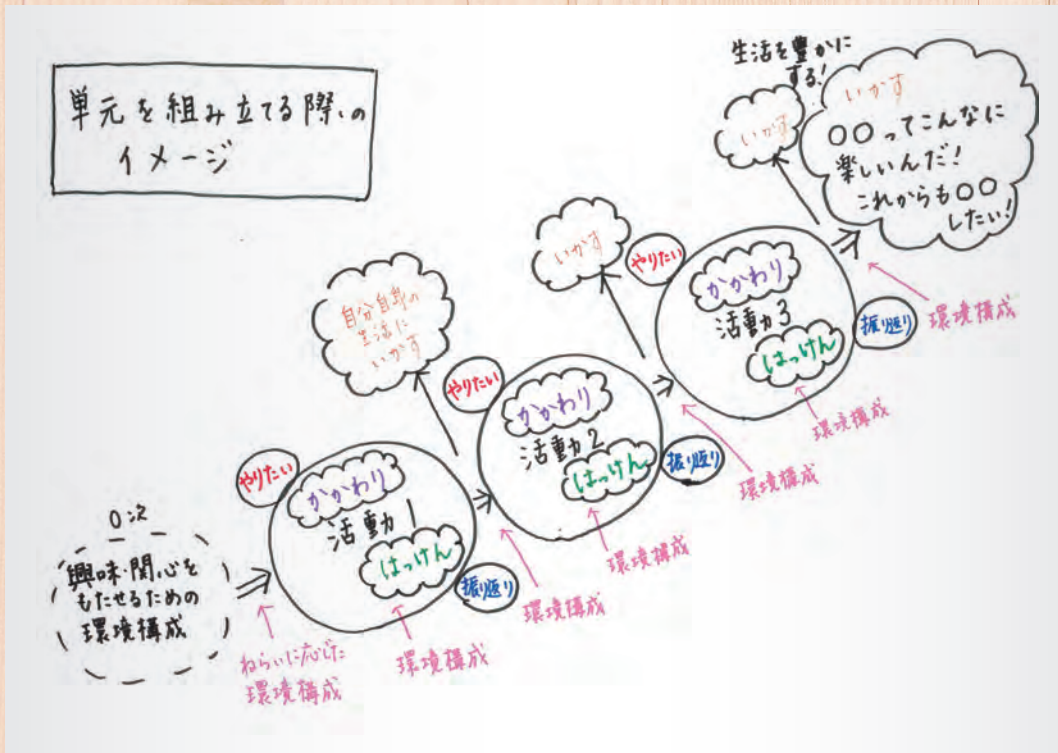 単元を組み立てる際の
イメージ
0次
興味・関心を
もたせるための
環境構成
ねらいに応じた
環境構成
やりたい
かかわり
活動1
はっけん
振り返り
環境構成
自分自身の
生活に
いかす
環境構成
やりたい
かかわり
活動2
はっけん
振り返り
環境構成
いかす
環境構成
やりたい
かかわり
活動3
はっけん
振り返り
環境構成
いかす
環境構成
生活を豊かに
する!
いかす
○○ってこんなに
楽しいんだ!
これからも○○
したい!